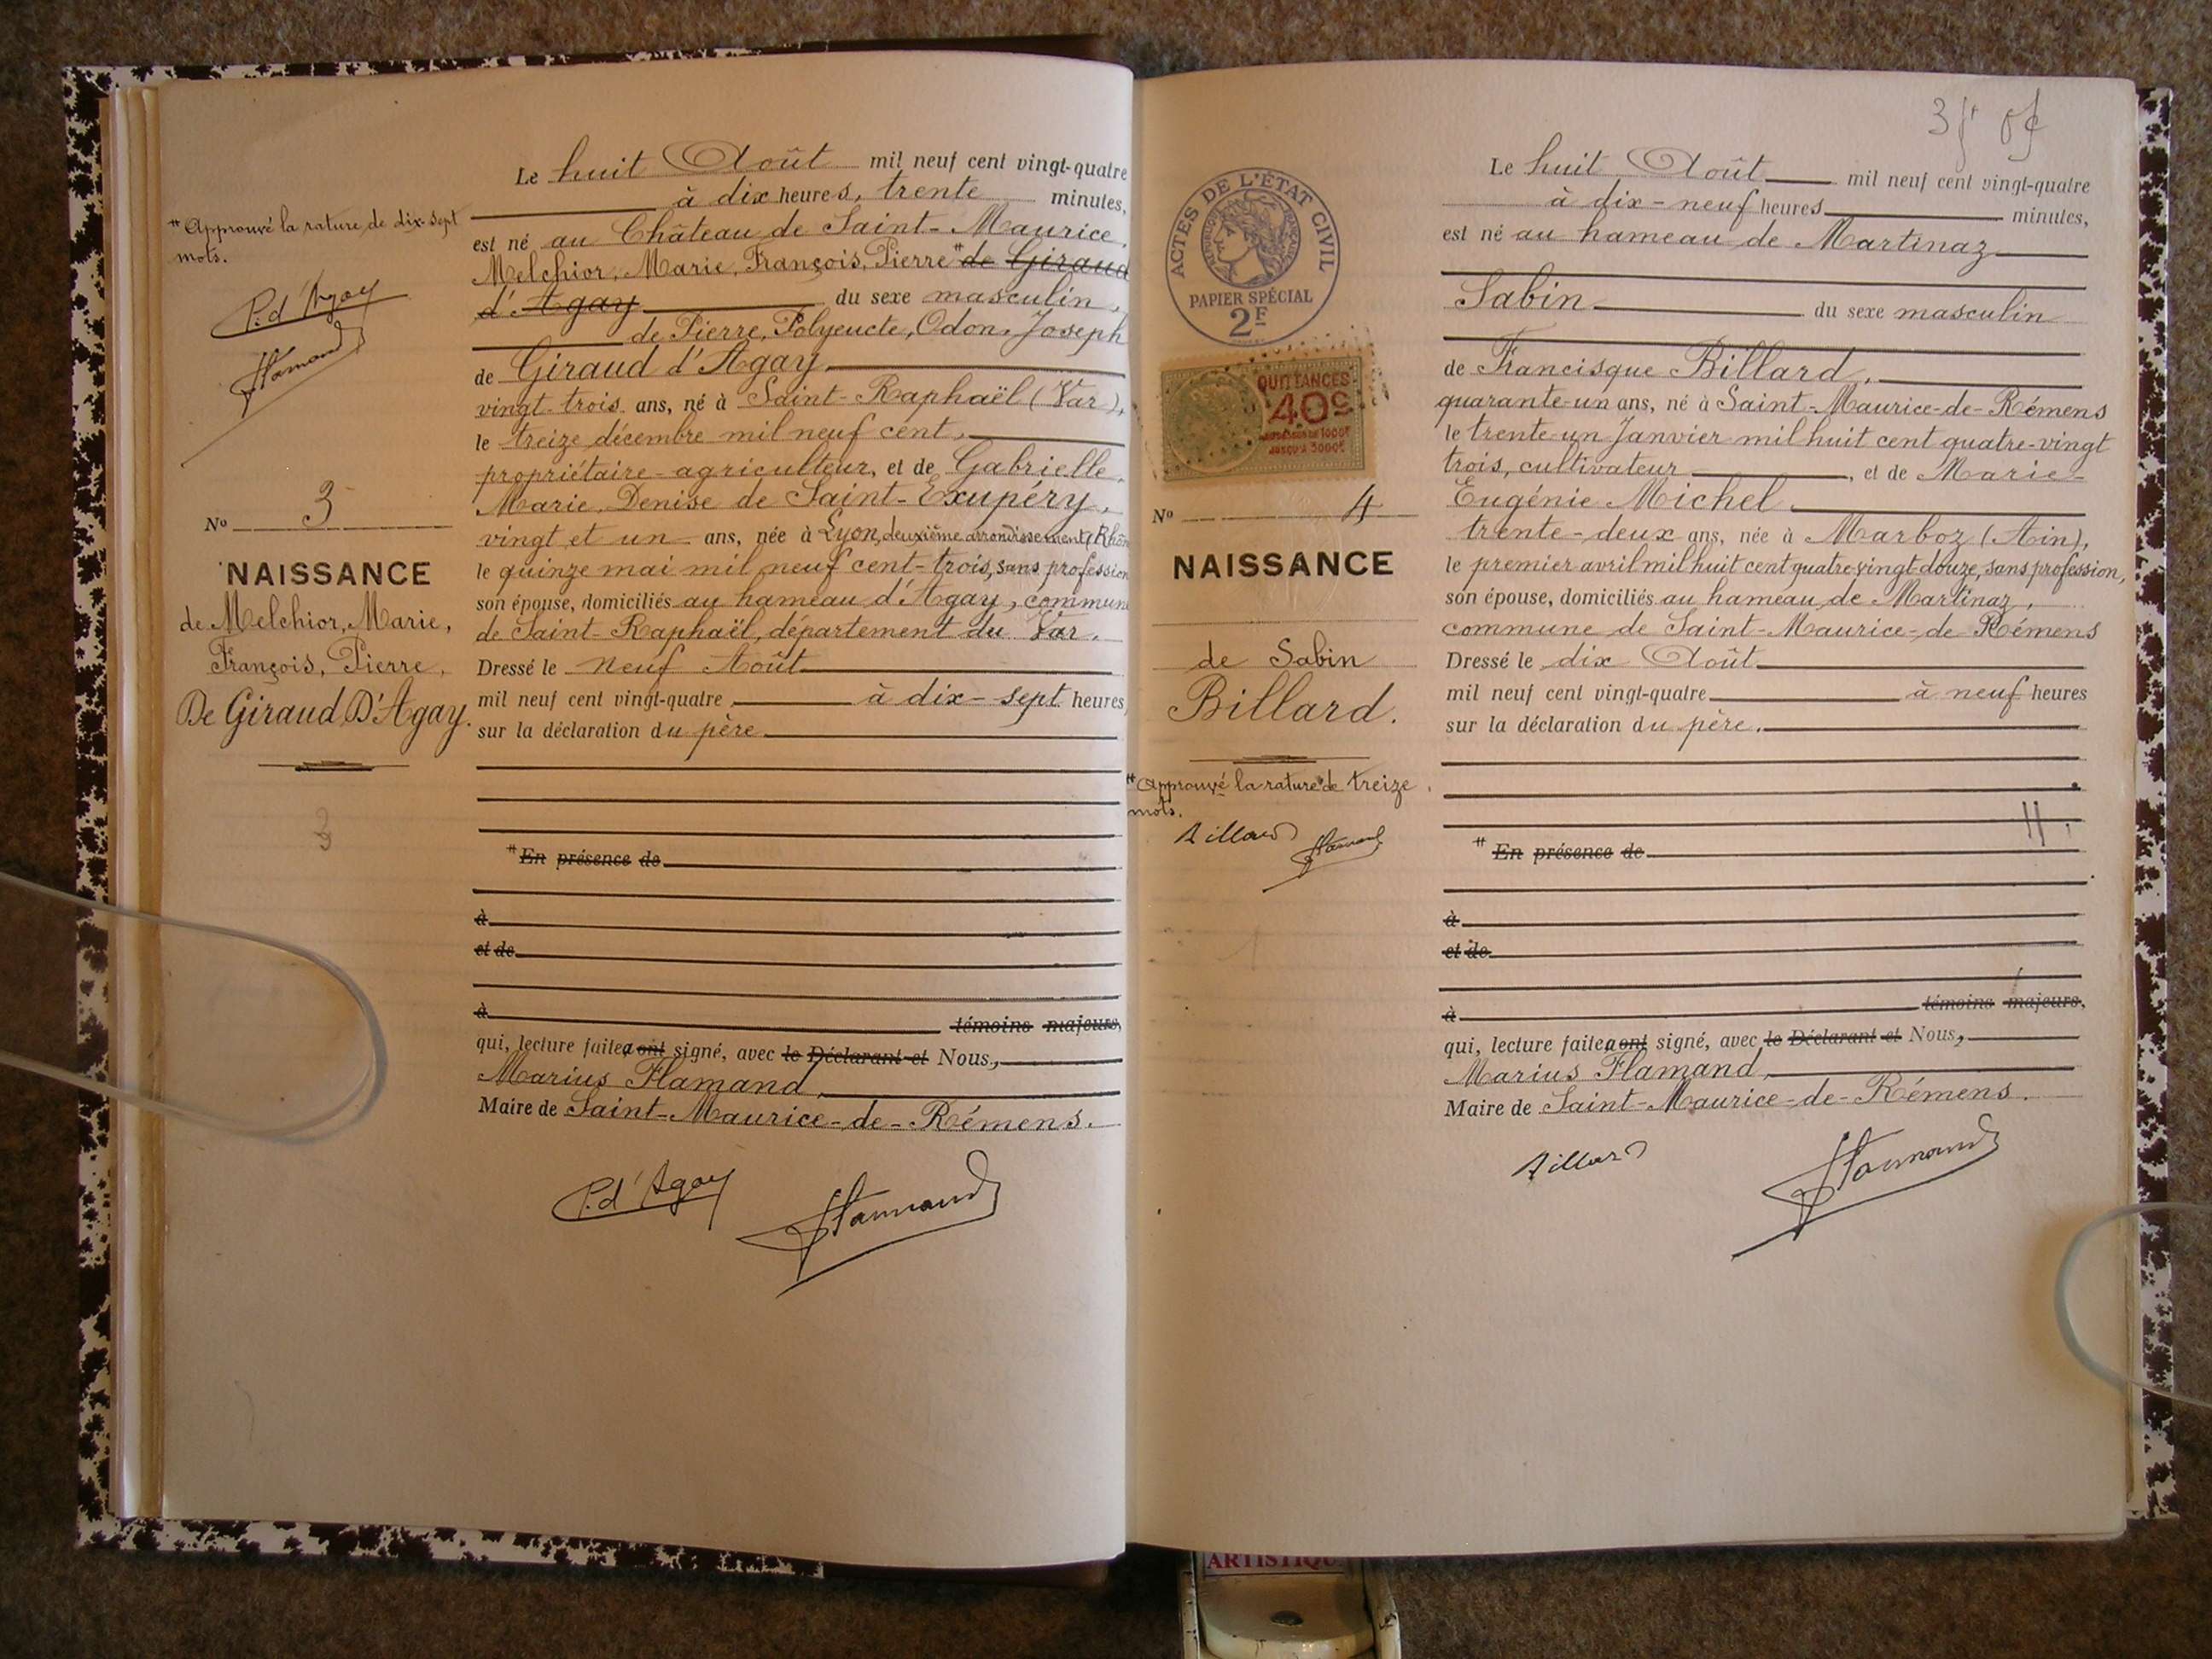 Le huit Août mil neuf cent vingt-quatre
à dix heures, trente minutes,
est né au Château de Saint-Maurice,
Melchior, Marie, François, Pierre # de Giraud
d'Agay du sexe masculin,
de Pierre, Polyeucte, Odon, Joseph
de Giraud d'Agay
vingt-trois ans, né à Saint-Raphaël (Var),
le treize décembre mil neuf cent,
propriétaire-agriculteur, et de Gabrielle,
Marie, Denise de Saint-Exupéry,
vingt et un ans, née à Lyon, deuxième arrondissement (Rhône
le quinze mai mil neuf cent-trois, sans profession
son épouse, domiciliés au hameau d'Agay, commune
de Saint-Raphaël, département du Var.
Dressé le neuf Août
mil neuf cent vingt-quatre, à dix-sept heures,
sur la déclaration du père
# En présence de
à
et de
à témoins majeurs,
qui, lecture faite, a ont signé, avec le Déclarant et Nous,
Marius Flamand,
Maire de Saint-Maurice-de-Rémens.
P. d'Agay
Flamand
# Approuvé la rature de dix-sept
mots.
P. d'Agay
Flamand
No 3
NAISSANCE
de Melchior, Marie,
François, Pierre,
De Giraud D'Agay.
3
ACTES DE L'ÉTAT CIVIL
RÉPUBLIQUE FRANÇAISE
PAPIER SPÉCIAL
2F
QUITTANCES
40c
No 4
NAISSANCE
de Sabin
Billard.
# Approuvé la rature de treize
mots.
Billard
Flamand
Le huit Août mil neuf cent vingt-quatre
à dix-neuf heures minutes,
est né au hameau de Martinaz
Sabin du sexe masculin
de Francisque Billard,
quarante-un ans, né à Saint-Maurice-de-Rémens
le trente-un Janvier mil huit cent quatre-vingt
trois, cultivateur, et de Marie-
Eugénie Michel
trente-deux ans, née à Marboz (Ain),
le premier avril mil huit cent quatre-vingt douze, sans profession,
son épouse, domiciliés au hameau de Martinaz,
commune de Saint-Maurice-de-Rémens
Dressé le dix Août
mil neuf cent vingt-quatre à neuf heures
sur la déclaration du père.
# En présence de
à
et de
à témoins majeurs,
qui, lecture faite a ont signé, avec le Déclarant et Nous,
Marius Flamand,
Maire de Saint-Maurice-de-Rémens.
Billard
Flamand